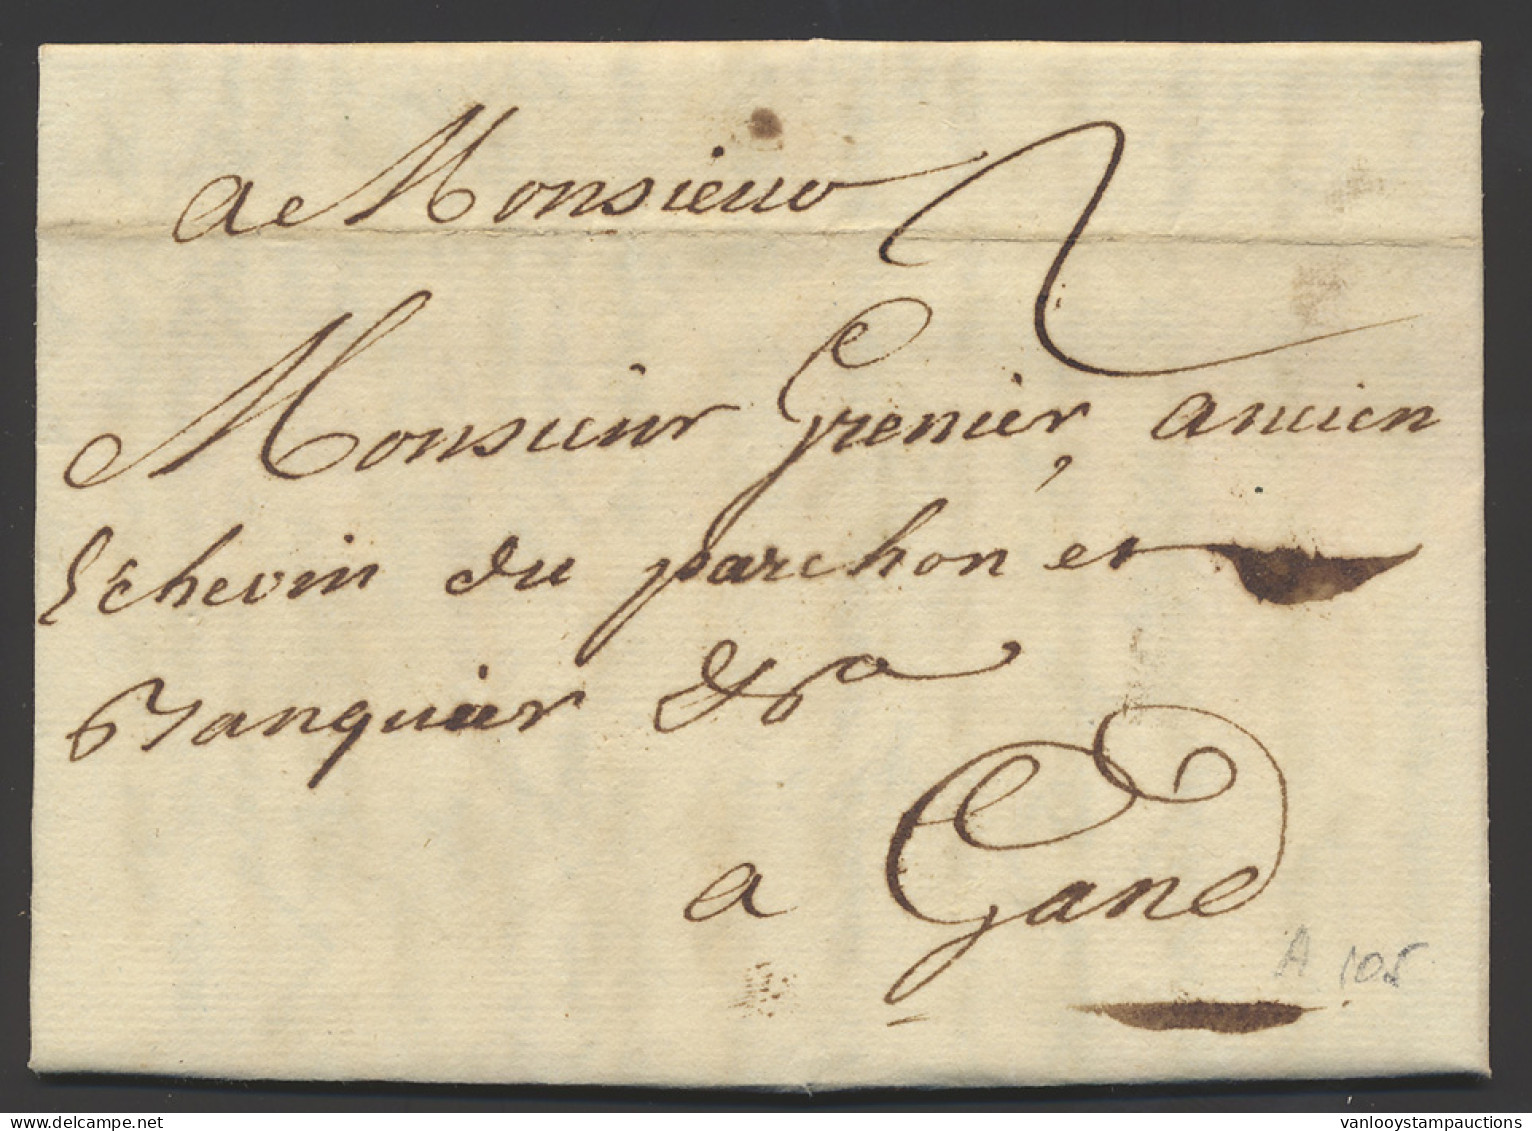 a Monsieur
2
Monsieur Grenier, ancien
Echevin du parchon et
Banquier &a
a Gand
A 105
vanlooystampauctions